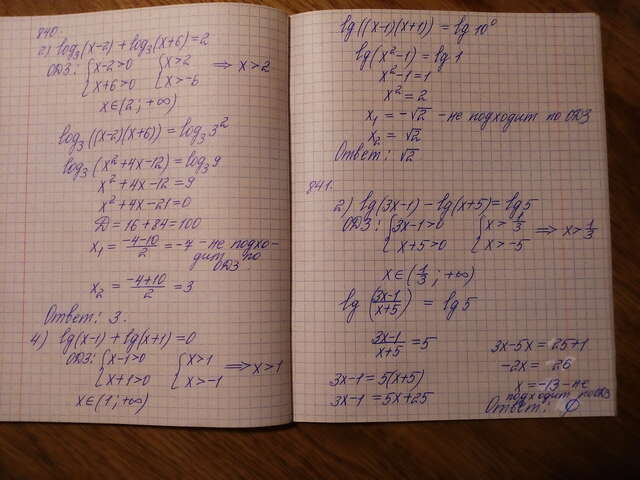 840.
2) log₃(x-2) + log₃(x+6) = 2
ОДЗ: { x-2>0 { x>2 ⇒ x>2
x+6>0 x>-6
x∈(2; +∞)
log₃((x-2)(x+6)) = log₃3²
log₃(x²+4x-12) = log₃9
x²+4x-12 = 9
x²+4x-21 = 0
D = 16+84 = 100
x₁ = (-4-10)/2 = -7 - не подхо-
дит по
ОДЗ
x₂ = (-4+10)/2 = 3
Ответ: 3.
4) lg(x-1) + lg(x+1) = 0
ОДЗ: { x-1>0 { x>1 ⇒ x>1
x+1>0 x>-1
x∈(1; +∞)
lg((x-1)(x+1)) = lg10⁰
lg(x²-1) = lg1
x²-1 = 1
x² = 2
x₁ = -√2 - не подходит по ОДЗ
x₂ = √2
Ответ: √2
841.
2) lg(3x-1) - lg(x+5) = lg5
ОДЗ: { 3x-1>0 { x>1/3 ⇒ x>1/3
x+5>0 x>-5
x∈(1/3; +∞)
lg((3x-1)/(x+5)) = lg5
(3x-1)/(x+5) = 5
3x-1 = 5(x+5)
3x-1 = 5x+25
3x-5x = 25+1
-2x = 26
x = -13 - не
подходит по ОДЗ
Ответ: ∅